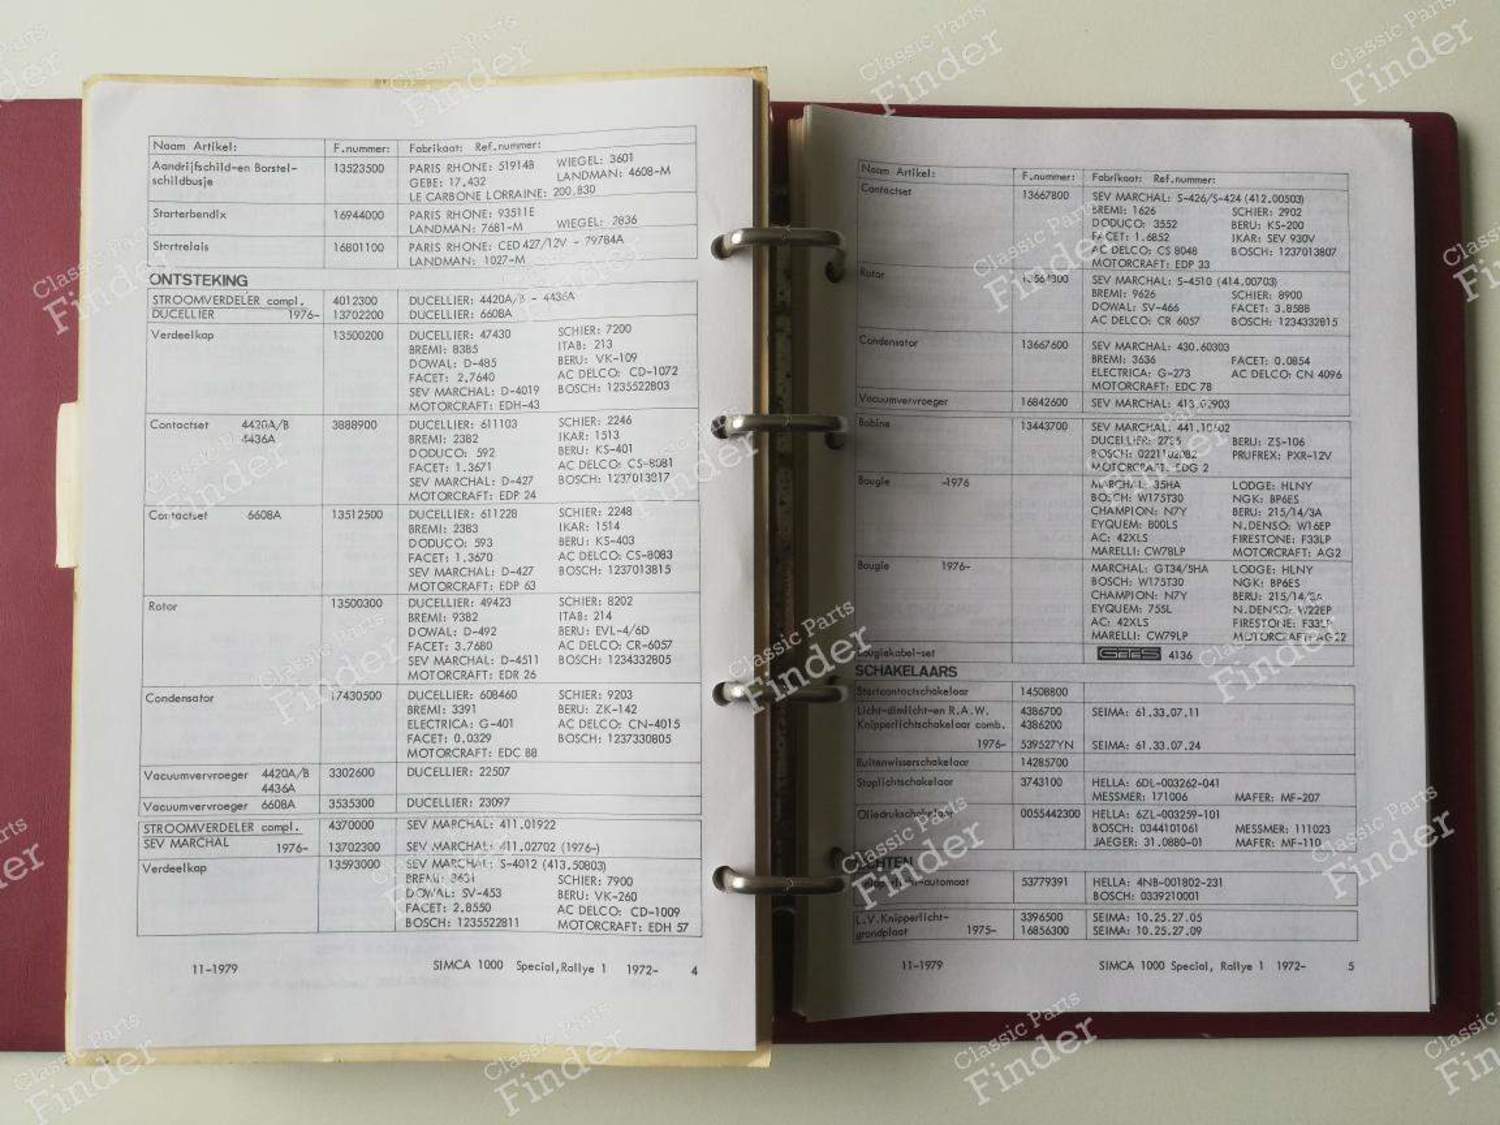 Naam Artikel: F.nummer: Fabrikaat: Ref.nummer:
Aandrijfschild-en Borstel- 13523500 PARIS RHONE: 519148 WIEGEL: 3601
schildbusje GEBE: 17.432 LANDMAN: 4608-M
LE CARBONE LORRAINE: 200.830
Starterbendix 16944000 PARIS RHONE: 93511E
LANDMAN: 7681-M WIEGEL: 2836
Startrelais 16801100 PARIS RHONE: CED 427/12V - 79784A
LANDMAN: 1027-M
ONTSTEKING
STROOMVERDELER compl. 4012300 DUCELLIER: 4420A/B - 4436A
DUCELLIER 1976- 13702200 DUCELLIER: 6608A
Verdeelkap 13500200 DUCELLIER: 47430 SCHIER: 7200
BREMI: 8385 ITAB: 213
DOWAL: D-485 BERU: VK-109
FACET: 2.7640 AC DELCO: CD-1072
SEV MARCHAL: D-4019 BOSCH: 1235522803
MOTORCRAFT: EDH-43
Contactset 4420A/B 3888900 DUCELLIER: 611103 SCHIER: 2246
4436A BREMI: 2382 IKAR: 1513
DODUCO: 592 BERU: KS-401
FACET: 1.3671 AC DELCO: CS-8081
SEV MARCHAL: D-427 BOSCH: 1237013817
MOTORCRAFT: EDP 24
Contactset 6608A 13512500 DUCELLIER: 611228 SCHIER: 2248
BREMI: 2383 IKAR: 1514
DODUCO: 593 BERU: KS-403
FACET: 1.3670 AC DELCO: CS-8083
SEV MARCHAL: D-427 BOSCH: 1237013815
MOTORCRAFT: EDP 63
Rotor 13500300 DUCELLIER: 49423 SCHIER: 8202
BREMI: 9382 ITAB: 214
DOWAL: D-492 BERU: EVL-4/6D
FACET: 3.7680 AC DELCO: CR-6057
SEV MARCHAL: D-4511 BOSCH: 1234332805
MOTORCRAFT: EDR 26
Condensator 17430500 DUCELLIER: 608460 SCHIER: 9203
BREMI: 3391 BERU: ZK-142
ELECTRICA: G-401 AC DELCO: CN-4015
FACET: 0.0329 BOSCH: 1237330805
MOTORCRAFT: EDC 88
Vacuumvervroeger 4420A/B 3302600 DUCELLIER: 22507
4436A
Vacuumvervroeger 6608A 3535300 DUCELLIER: 23097
STROOMVERDELER compl. 4370000 SEV MARCHAL: 411.01922
SEV MARCHAL 1976- 13702300 SEV MARCHAL: 411.02702 (1976-)
Verdeelkap 13593000 SEV MARCHAL: S-4012 (413.50803)
BREMI: 3631 SCHIER: 7900
DOWAL: SV-453 BERU: VK-260
FACET: 2.8550 AC DELCO: CD-1009
BOSCH: 1235522811 MOTORCRAFT: EDH 57
11-1979 SIMCA 1000 Special,Rallye 1 1972- 4
Naam Artikel: F.nummer: Fabrikaat: Ref.nummer:
Contactset 13667800 SEV MARCHAL: S-426/S-424 (412.00503)
BREMI: 1626 SCHIER: 2902
DODUCO: 3552 BERU: KS-200
FACET: 1.6852 IKAR: SEV 930V
AC DELCO: CS 8048 BOSCH: 1237013807
MOTORCRAFT: EDP 33
Rotor SEV MARCHAL: S-4510 (414.00703)
BREMI: 9626 SCHIER: 8900
DOWAL: SV-466 FACET: 3.8588
AC DELCO: CR 6057 BOSCH: 1234332815
Condensator 13667600 SEV MARCHAL: 430.60303
BREMI: 3636 FACET: 0.0854
ELECTRICA: G-273 AC DELCO: CN 4096
MOTORCRAFT: EDC 78
Vacuumvervroeger 16842600 SEV MARCHAL: 413.02903
Bobine 13443700 SEV MARCHAL:
DUCELLIER: BERU: ZS-106
BOSCH: 0221102082 PRUFREX: PXR-12V
MOTORCRAFT: EDG 2
Bougie -1976 MARCHAL: 35HA LODGE: HLNY
BOSCH: W175T30 NGK: BP6ES
CHAMPION: N7Y BERU: 215/14/3A
EYQUEM: 800LS N.DENSO: W16EP
AC: 42XLS FIRESTONE: F33LP
MARELLI: CW78LP MOTORCRAFT: AG2
Bougie 1976- MARCHAL: GT34/5HA LODGE: HLNY
BOSCH: W175T30 NGK: BP6ES
CHAMPION: N7Y BERU: 215/14/3A
EYQUEM: 755L N.DENSO: W22EP
AC: 42XLS FIRESTONE: F33LP
MARELLI: CW79LP MOTORCRAFT: AG22
Bougiekabel-set 4136
SCHAKELAARS
Startcontactschakelaar 14508800
Licht-dimlicht-en R.A.W. 4386700 SEIMA: 61.33.07.11
Knipperlichtschakelaar comb. 4386200
1976- 539527YN SEIMA: 61.33.07.24
Ruitenwisserschakelaar 14285700
Stoplichtschakelaar 3743100 HELLA: 6DL-003262-041
MESSMER: 171006 MAFER: MF-207
Oliedrukschakelaar 0055442300 HELLA: 6ZL-003259-101
BOSCH: 0344101061 MESSMER: 111023
JAEGER: 31.0880-01 MAFER: MF-110
LICHTEN
53779391 HELLA: 4NB-001802-231
BOSCH: 0339210001
L.V.Knipperlicht- 3396500 SEIMA: 10.25.27.05
grondplaat 1975- 16856300 SEIMA: 10.25.27.09
11-1979 SIMCA 1000 Special, Rallye 1 1972- 5
Classic Parts
Finder